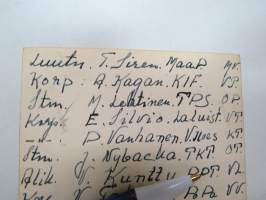 Luutn. T. Siren. MaaP MV.
Korp. A. Kagan. KIF. VP.
Stm. M. Lehtinen. TPS. OP.
Korp. E. Silvio. Laluist. VT.
-"- P. Vanhanen. KT.
Stm. J. Nybacka. TKT. OT.
Alik. V. Kunttu VL.
PaPa VV.